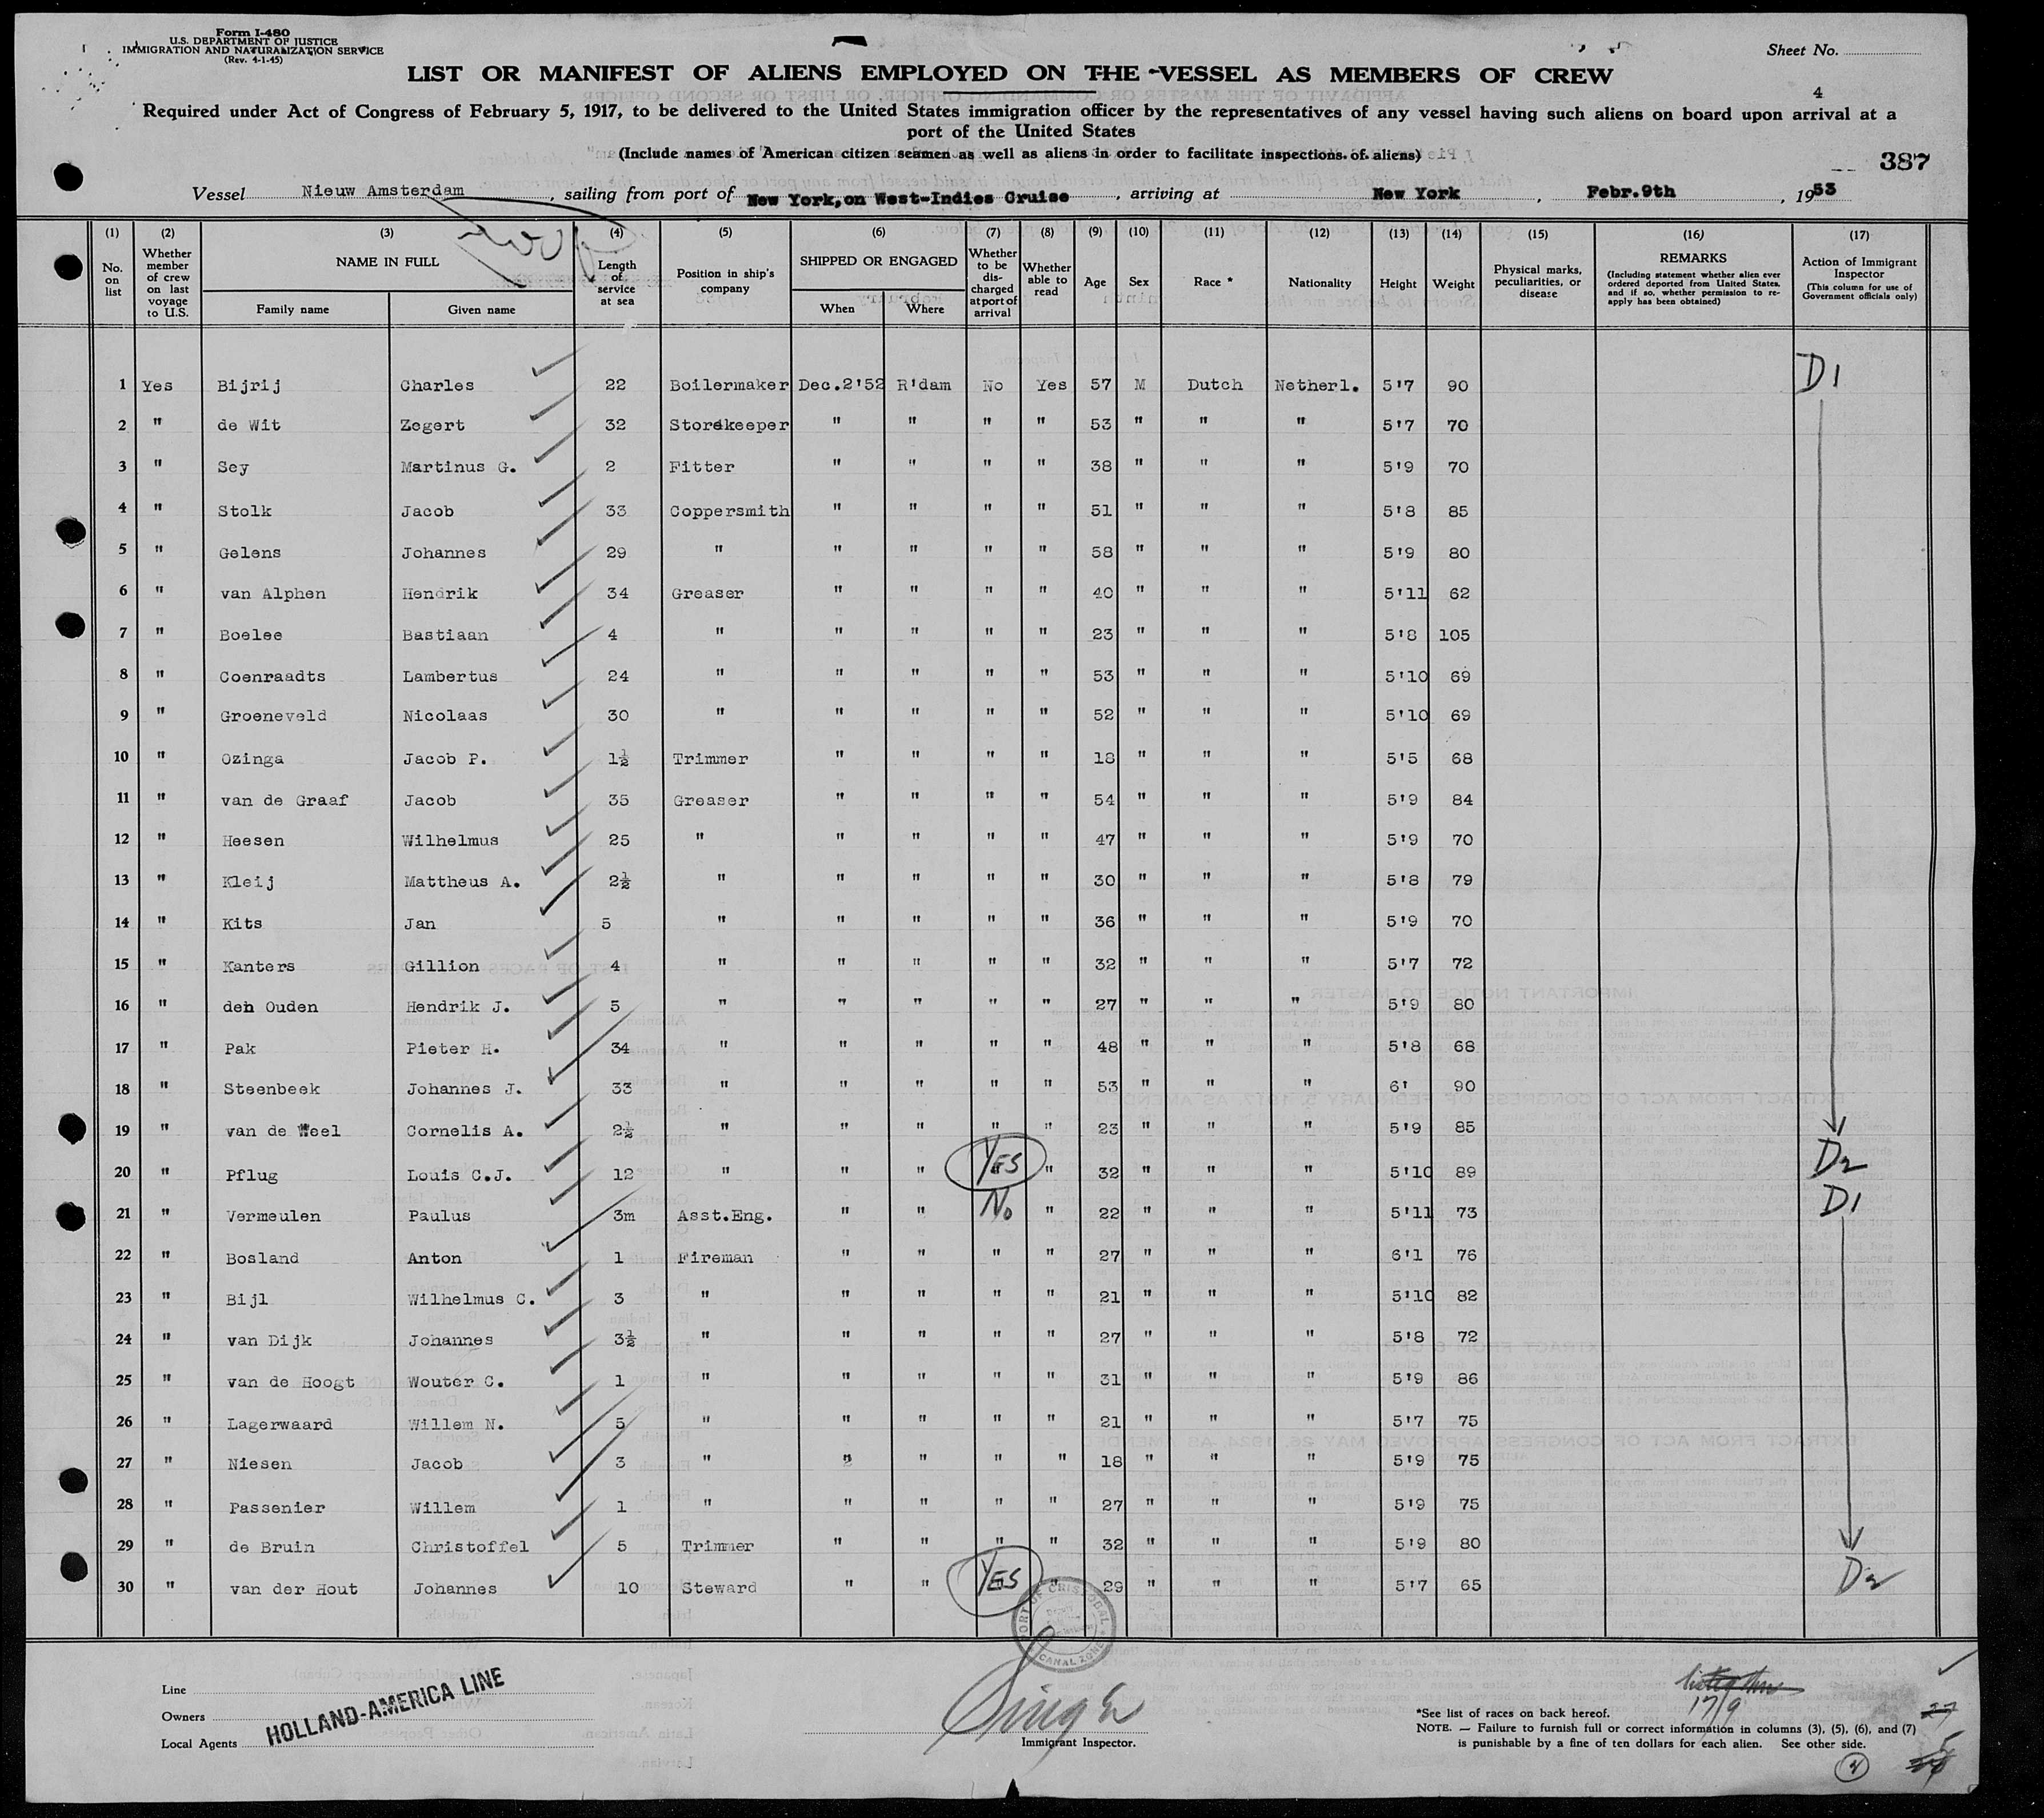 Form I-480
U.S. DEPARTMENT OF JUSTICE
IMMIGRATION AND NATURALIZATION SERVICE
(Rev. 4-1-45)
Sheet No.
LIST OR MANIFEST OF ALIENS EMPLOYED ON THE VESSEL AS MEMBERS OF CREW
4
Required under Act of Congress of February 5, 1917, to be delivered to the United States immigration officer by the representatives of any vessel having such aliens on board upon arrival at a
port of the United States
(Include names of American citizen seamen as well as aliens in order to facilitate inspections of aliens)
387
Vessel Nieuw Amsterdam, sailing from port of New York, on West-Indies Cruise, arriving at New York, Febr.9th, 1953
(1) (2) (3) (4) (5) (6) (7) (8) (9) (10) (11) (12) (13) (14) (15) (16) (17)
No. on list
Whether member of crew on last voyage to U.S.
NAME IN FULL
Family name
Given name
Length of service at sea
Position in ship's company
SHIPPED OR ENGAGED
When
Where
Whether to be discharged at port of arrival
Whether able to read
Age
Sex
Race *
Nationality
Height
Weight
Physical marks, peculiarities, or disease
REMARKS
(Including statement whether alien ever ordered deported from United States, and if so, whether permission to reapply has been obtained)
Action of Immigrant Inspector
(This column for use of Government officials only)
1 Yes Bijrij Charles 22 Boilermaker Dec.2'52 R'dam No Yes 57 M Dutch Netherl. 5'7 90 D1
2 " de Wit Zegert 32 Storekeeper " " " " 53 " " " 5'7 70
3 " Sey Martinus G. 2 Fitter " " " " 38 " " " 5'9 70
4 " Stolk Jacob 33 Coppersmith " " " " 51 " " " 5'8 85
5 " Gelens Johannes 29 " " " " " 58 " " " 5'9 80
6 " van Alphen Hendrik 34 Greaser " " " " 40 " " " 5'11 62
7 " Boelee Bastiaan 4 " " " " " 23 " " " 5'8 105
8 " Coenraadts Lambertus 24 " " " " " 53 " " " 5'10 69
9 " Groeneveld Nicolaas 30 " " " " " 52 " " " 5'10 69
10 " Ozinga Jacob P. 1½ Trimmer " " " " 18 " " " 5'5 68
11 " van de Graaf Jacob 35 Greaser " " " " 54 " " " 5'9 84
12 " Heesen Wilhelmus 25 " " " " " 47 " " " 5'9 70
13 " Kleij Mattheus A. 2½ " " " " " 30 " " " 5'8 79
14 " Kits Jan 5 " " " " " 36 " " " 5'9 70
15 " Kanters Gillion 4 " " " " " 32 " " " 5'7 72
16 " den Ouden Hendrik J. 5 " " " " " 27 " " " 5'9 80
17 " Pak Pieter H. 34 " " " " " 48 " " " 5'8 68
18 " Steenbeek Johannes J. 33 " " " " " 53 " " " 6' 90
19 " van de Weel Cornelis A. 2½ " " " " " 23 " " " 5'9 85
20 " Pflug Louis C.J. 12 " " " YES " 32 " " " 5'10 89 D2
21 " Vermeulen Paulus 3m Asst.Eng. " " No " 22 " " " 5'11 73 D1
22 " Bosland Anton 1 Fireman " " " " 27 " " " 6'1 76
23 " Bijl Wilhelmus C. 3 " " " " " 21 " " " 5'10 82
24 " van Dijk Johannes 3½ " " " " " 27 " " " 5'8 72
25 " van de Hoogt Wouter C. 1 " " " " " 31 " " " 5'9 86
26 " Lagerwaard Willem N. 5 " " " " " 21 " " " 5'7 75
27 " Niesen Jacob 3 " " " " " 18 " " " 5'9 75
28 " Passenier Willem 1 " " " " " 27 " " " 5'9 75
29 " de Bruin Christoffel 5 Trimmer " " " " 32 " " " 5'9 80
30 " van der Hout Johannes 10 Steward " " YES " 29 " " " 5'7 65 D2
PORT OF CRISTOBAL
CANAL ZONE
Line
Owners
Local Agents
HOLLAND-AMERICA LINE
Immigrant Inspector.
17/9
*See list of races on back hereof.
NOTE. — Failure to furnish full or correct information in columns (3), (5), (6), and (7)
is punishable by a fine of ten dollars for each alien. See other side.